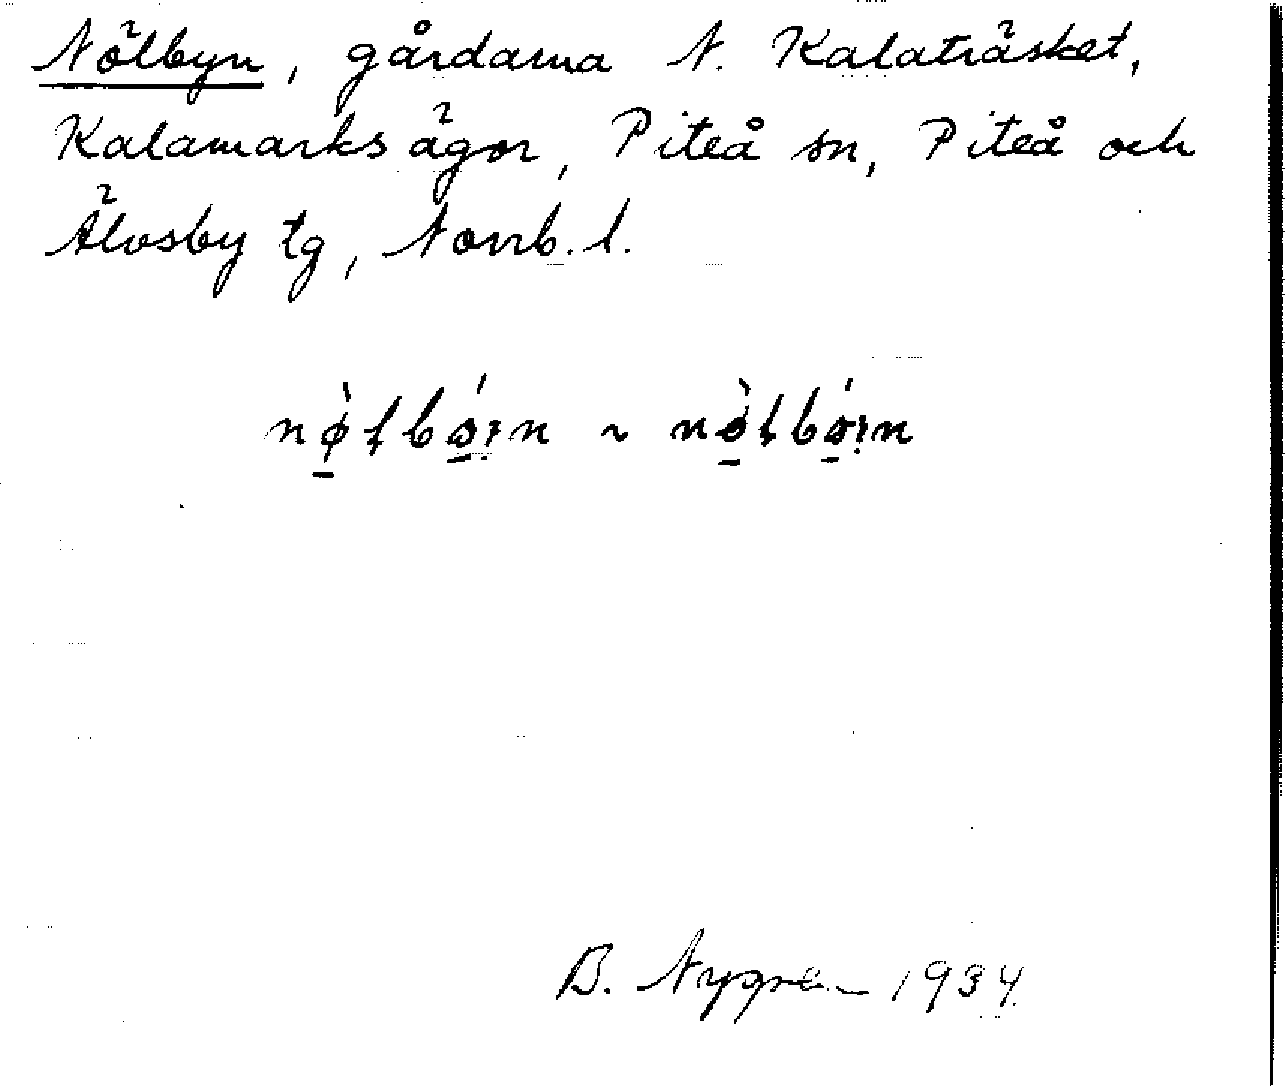 Nölbyn, gårdarna N. Kalaträsket,
Kalamarks ägor, Piteå sn, Piteå och
Älvsby tg, Norrb. l.
nø̱̀ɫbǿ̱ın ~ nø̱̀ɫbǿ̱ın
B. Nygren 1934